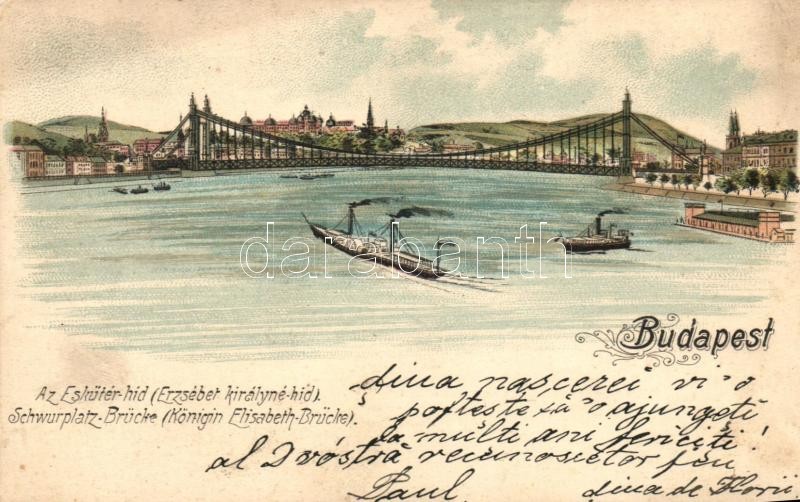 darabanth
Budapest
Az Eskütér-hid (Erzsébet királyné-hid).
Schwurplatz-Brücke (Königin Elisabeth-Brücke).
diua nascerei vi'o
pofteste să'o ajungeti
la mulți ani fericiti!
al Dvóstră recunoscĕtor fiu
Paul
diua de Florii